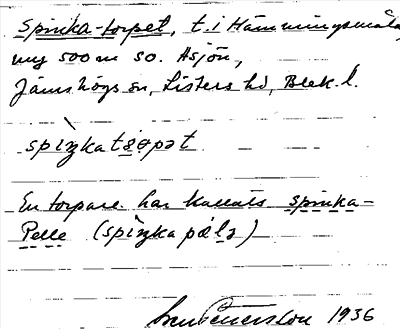 Spinka-torpet, t. i Hämmingsmåla
ung 500 m so. Asjön,
Jämshögs sn, Listers hd, Blek. l.
spìŋkatɔrpət
En torpare har kallats Spinka-
Pelle (spìŋkapælə)
1936